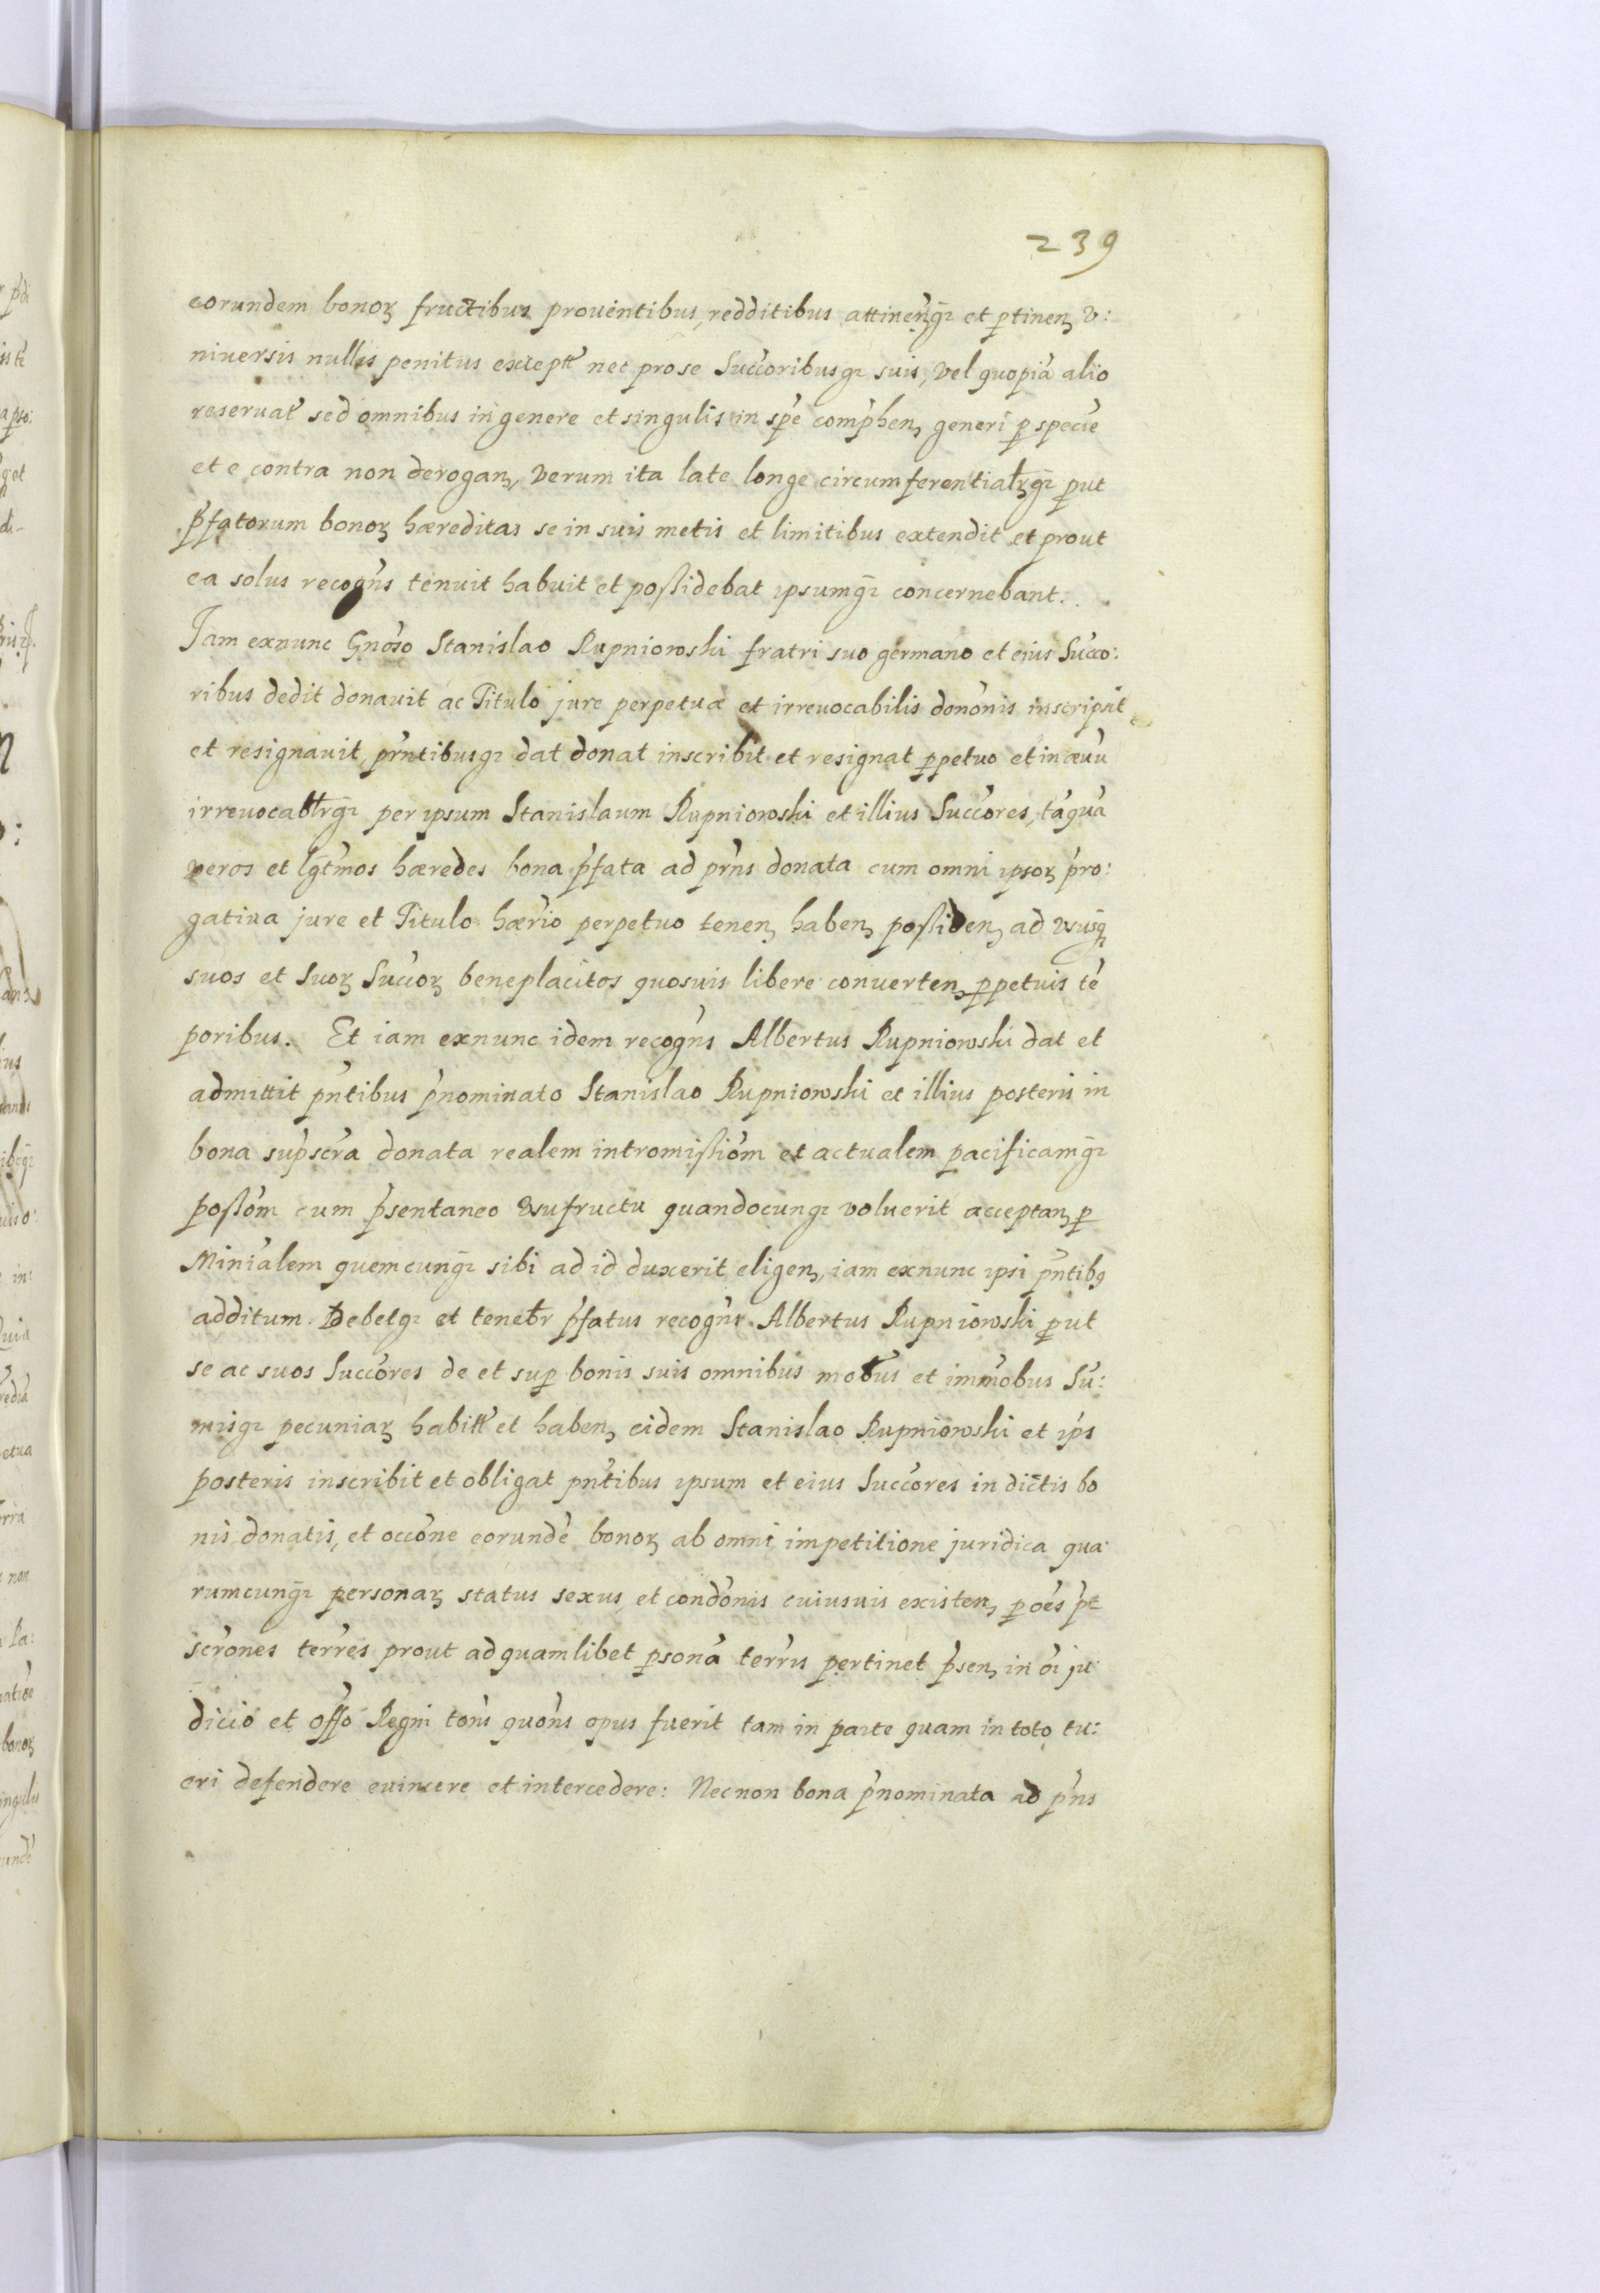 239
eorundem bonoꝝ fructibus prouentibus, redditibus attinenꝫq̃ et ꝑtinenꝫ V:
niuersis nullis penitus exceptꝭ nec pro se Succoribusqꝫ suis, vel quopiã alio
reseruatꝭ sed omnibus in genere et singulis in spe͠ comp͠henꝫ generi ꝑ specie͠
et e contra non deroganꝫ, verum ita late longe circumferentialr̃qꝫ ꝓut
p͠fatorum bonoꝝ hæreditas se in suis metis et limitibus extendit et prout
ea solus recogn͠s tenuit habuit et possidebat ipsumqꝫ concernebant.
Iam exnunc Gnõso Stanislao Rupniowski fratri suo germano et eius Succo:
ribus dedit donauit ac Titulo jure perpetuæ et irreuocabilis donõnis inscripsit
et resignauit, prñtibusqꝫ dat donat inscribit et resignat ꝑpetuo et in æuũ
irreuocablr̃qꝫ per ipsum Stanislaum Rupniowski et illius Succõres, tãquã
veros et lgt͠mos hæredes bona p͠fata ad prñs donata cum omni ipsoꝝ p͠ro:
gatiua jure et Titulo hær͠io perpetuo tenenꝫ habenꝫ possidenꝫ ad vsusqꝫ
suos et Suoꝝ Succoꝝ beneplacitos quosuis libere conuertenꝫ ꝑpetuis tẽ
poribus. Et iam exnunc idem recogn͠s Albertus Rupniowski dat et
admittit pñtibus p͠nominato Stanislao Rupniowski et illius posteris in
bona sup͠scr͠a donata realem intromissiõm et actualem pacificamqꝫ
possõm cum p͠sentaneo Vsufructu quandocunqꝫ voluerit acceptanꝫ ꝑ
Miniãlem quemcunqꝫ sibi ad id duxerit eligenꝫ, iam exnunc ipsi pñtibꝰ
additum. Debetqꝫ et tenebr̃ p͠fatus recogn͠s Albertus Rupniowski ꝓut
se ac suos Succõres de et suꝑ bonis suis omnibus mobũs et immõbus Su͠:
misqꝫ pecuniaꝝ habitꝭ et habenꝫ eidem Stanislao Rupniowski et ip͠s
posteris inscribit et obligat pñtibus ipsum et eius Succõres in dictis bo
nis donatis, et occõne eorundẽ bonoꝝ ab omni impetitione juridica qua
rumcunqꝫ personaꝝ status sexus et condõnis cuiusuis existenꝫ ꝑ oẽs p͠t
scr͠ones terr͠es prout ad quamlibet ꝑsonã terr͠is pertinet p͠senꝫ in õi ju
dicio et offo͠ Regni totñs quotñs opus fuerit tam in parte quam in toto tu:
eri defendere euincere et intercedere: Necnon bona p͠nominata ad p͠ns